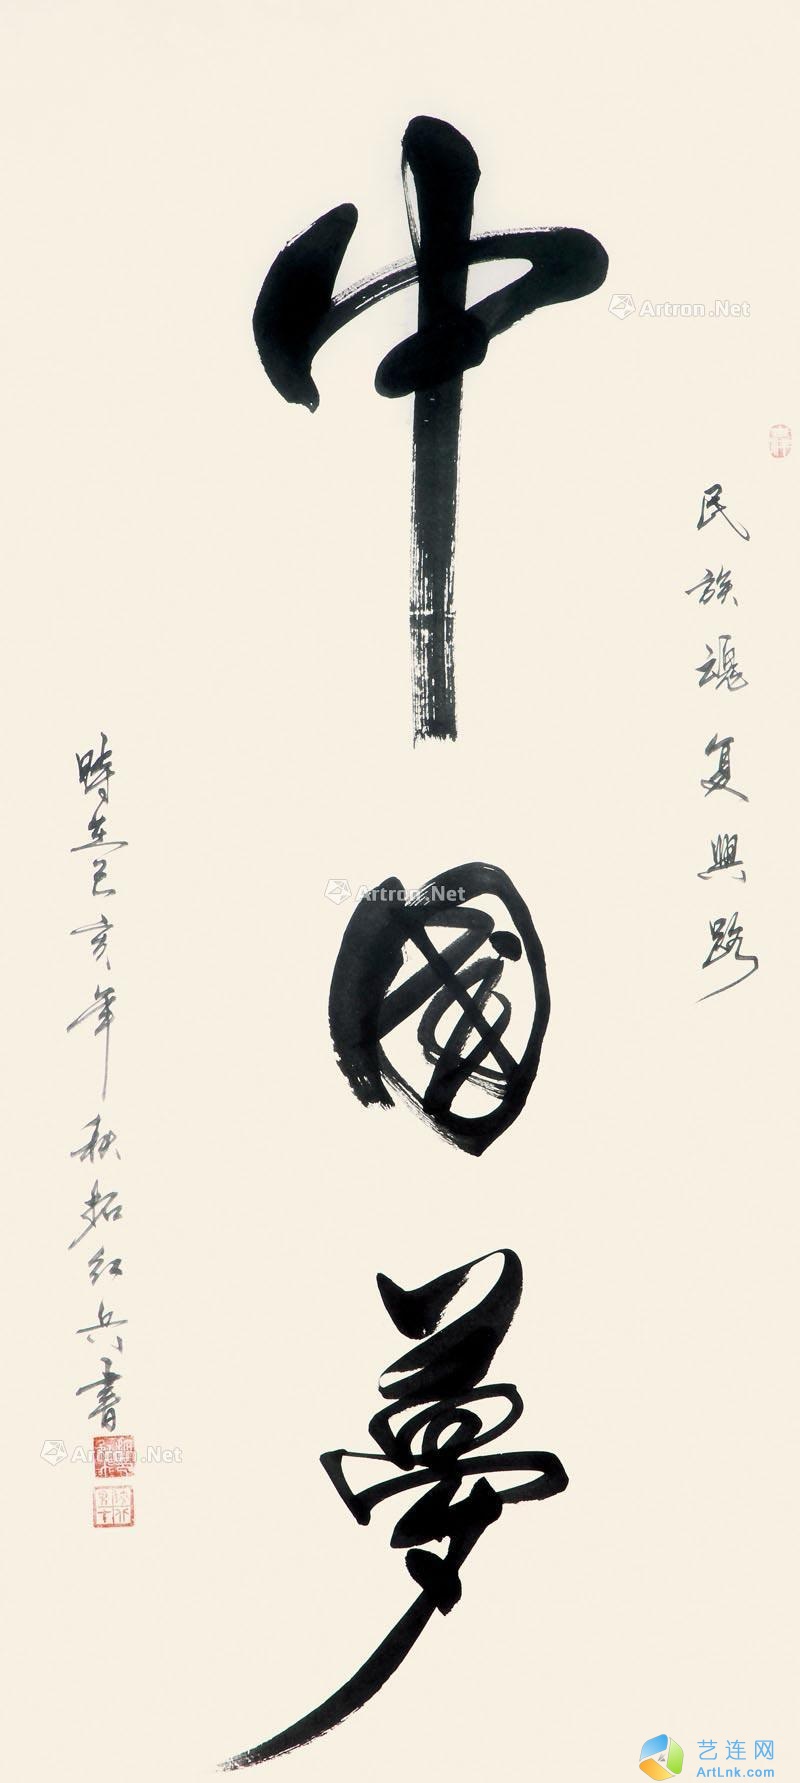 中國夢
民族魂复興路
時在己亥年秋拓红兵書
Artron.Net
Artron.Net
Artron.Net
艺连网
ArtLnk.com